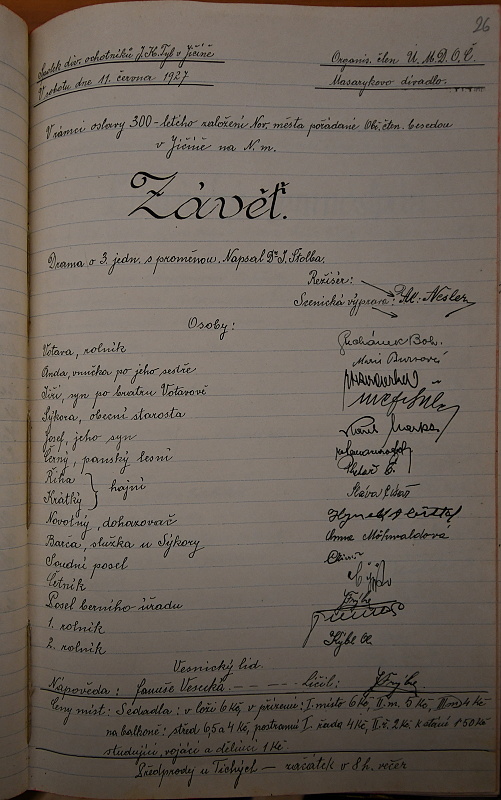 26
Spolek div. ochotníků J.K.Tyl v Jičíně
Organis. člen Ú.M.D.O.Č.
V sobotu dne 11. června 1927
Masarykovo divadlo.
V rámci oslavy 300-letého založení Nov. města pořádané Obč. člen. besedou
v Jičíně na N.m.
Závěť.
Drama o 3. jedn. s proměnou. Napsal Dr J. Štolba.
Režisér:
Scenická výprava: Al. Nesler
Osoby:
Votava, rolník
Suchánek Boh.
Anda, vnučka po jeho sestře
Marie
Jiří, syn po bratru Votavově
Sýkora, obecní starosta
Josef, jeho syn
Karel
Černý, panský lesní
Říha
Krátký } hajní
Sláva
Novotný, dohazovač
Hynek
Barča, služka u Sýkory
Anna Möhwaldova
Soudní posel
Četník
Posel berního úřadu
1. rolník
2. rolník
Vesnický lid.
Nápověda: Vesecká. — Líčil:
Ceny míst: Sedadla: v loži 6 Kč, v přízemí: I. místo 6 Kč, II.m. 5 Kč, III.m 4 Kč
na balkoně: střed 6,5 a 4 Kč, postranní I. řada 4 Kč, II.ř. 2 Kč k stání 1.50 Kč
studující, vojáci a dělníci 1 Kč.
Předprodej u Tichých — začátek v 8 h. večer